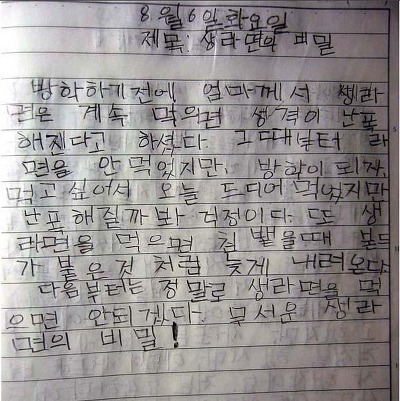 8월 6일 화요일
제목: 생라면의 비밀
방학하기전에 엄마께서 생라
면은 계속 먹으면 성격이 난폭
해진다고 하셨다. 그때부터 라
면을 안 먹었지만, 방학이 되자,
먹고 싶어서 오늘 드디어 먹었지만
난폭해질까 봐 걱정이다. 또 생
라면을 먹으면 침 뱉을때 본드
가 붙은것 처럼 늦게 내려온다.
다음부터는 정말로 생라면을 먹
으면 안되겠다. 무서운 생라
면의 비밀!